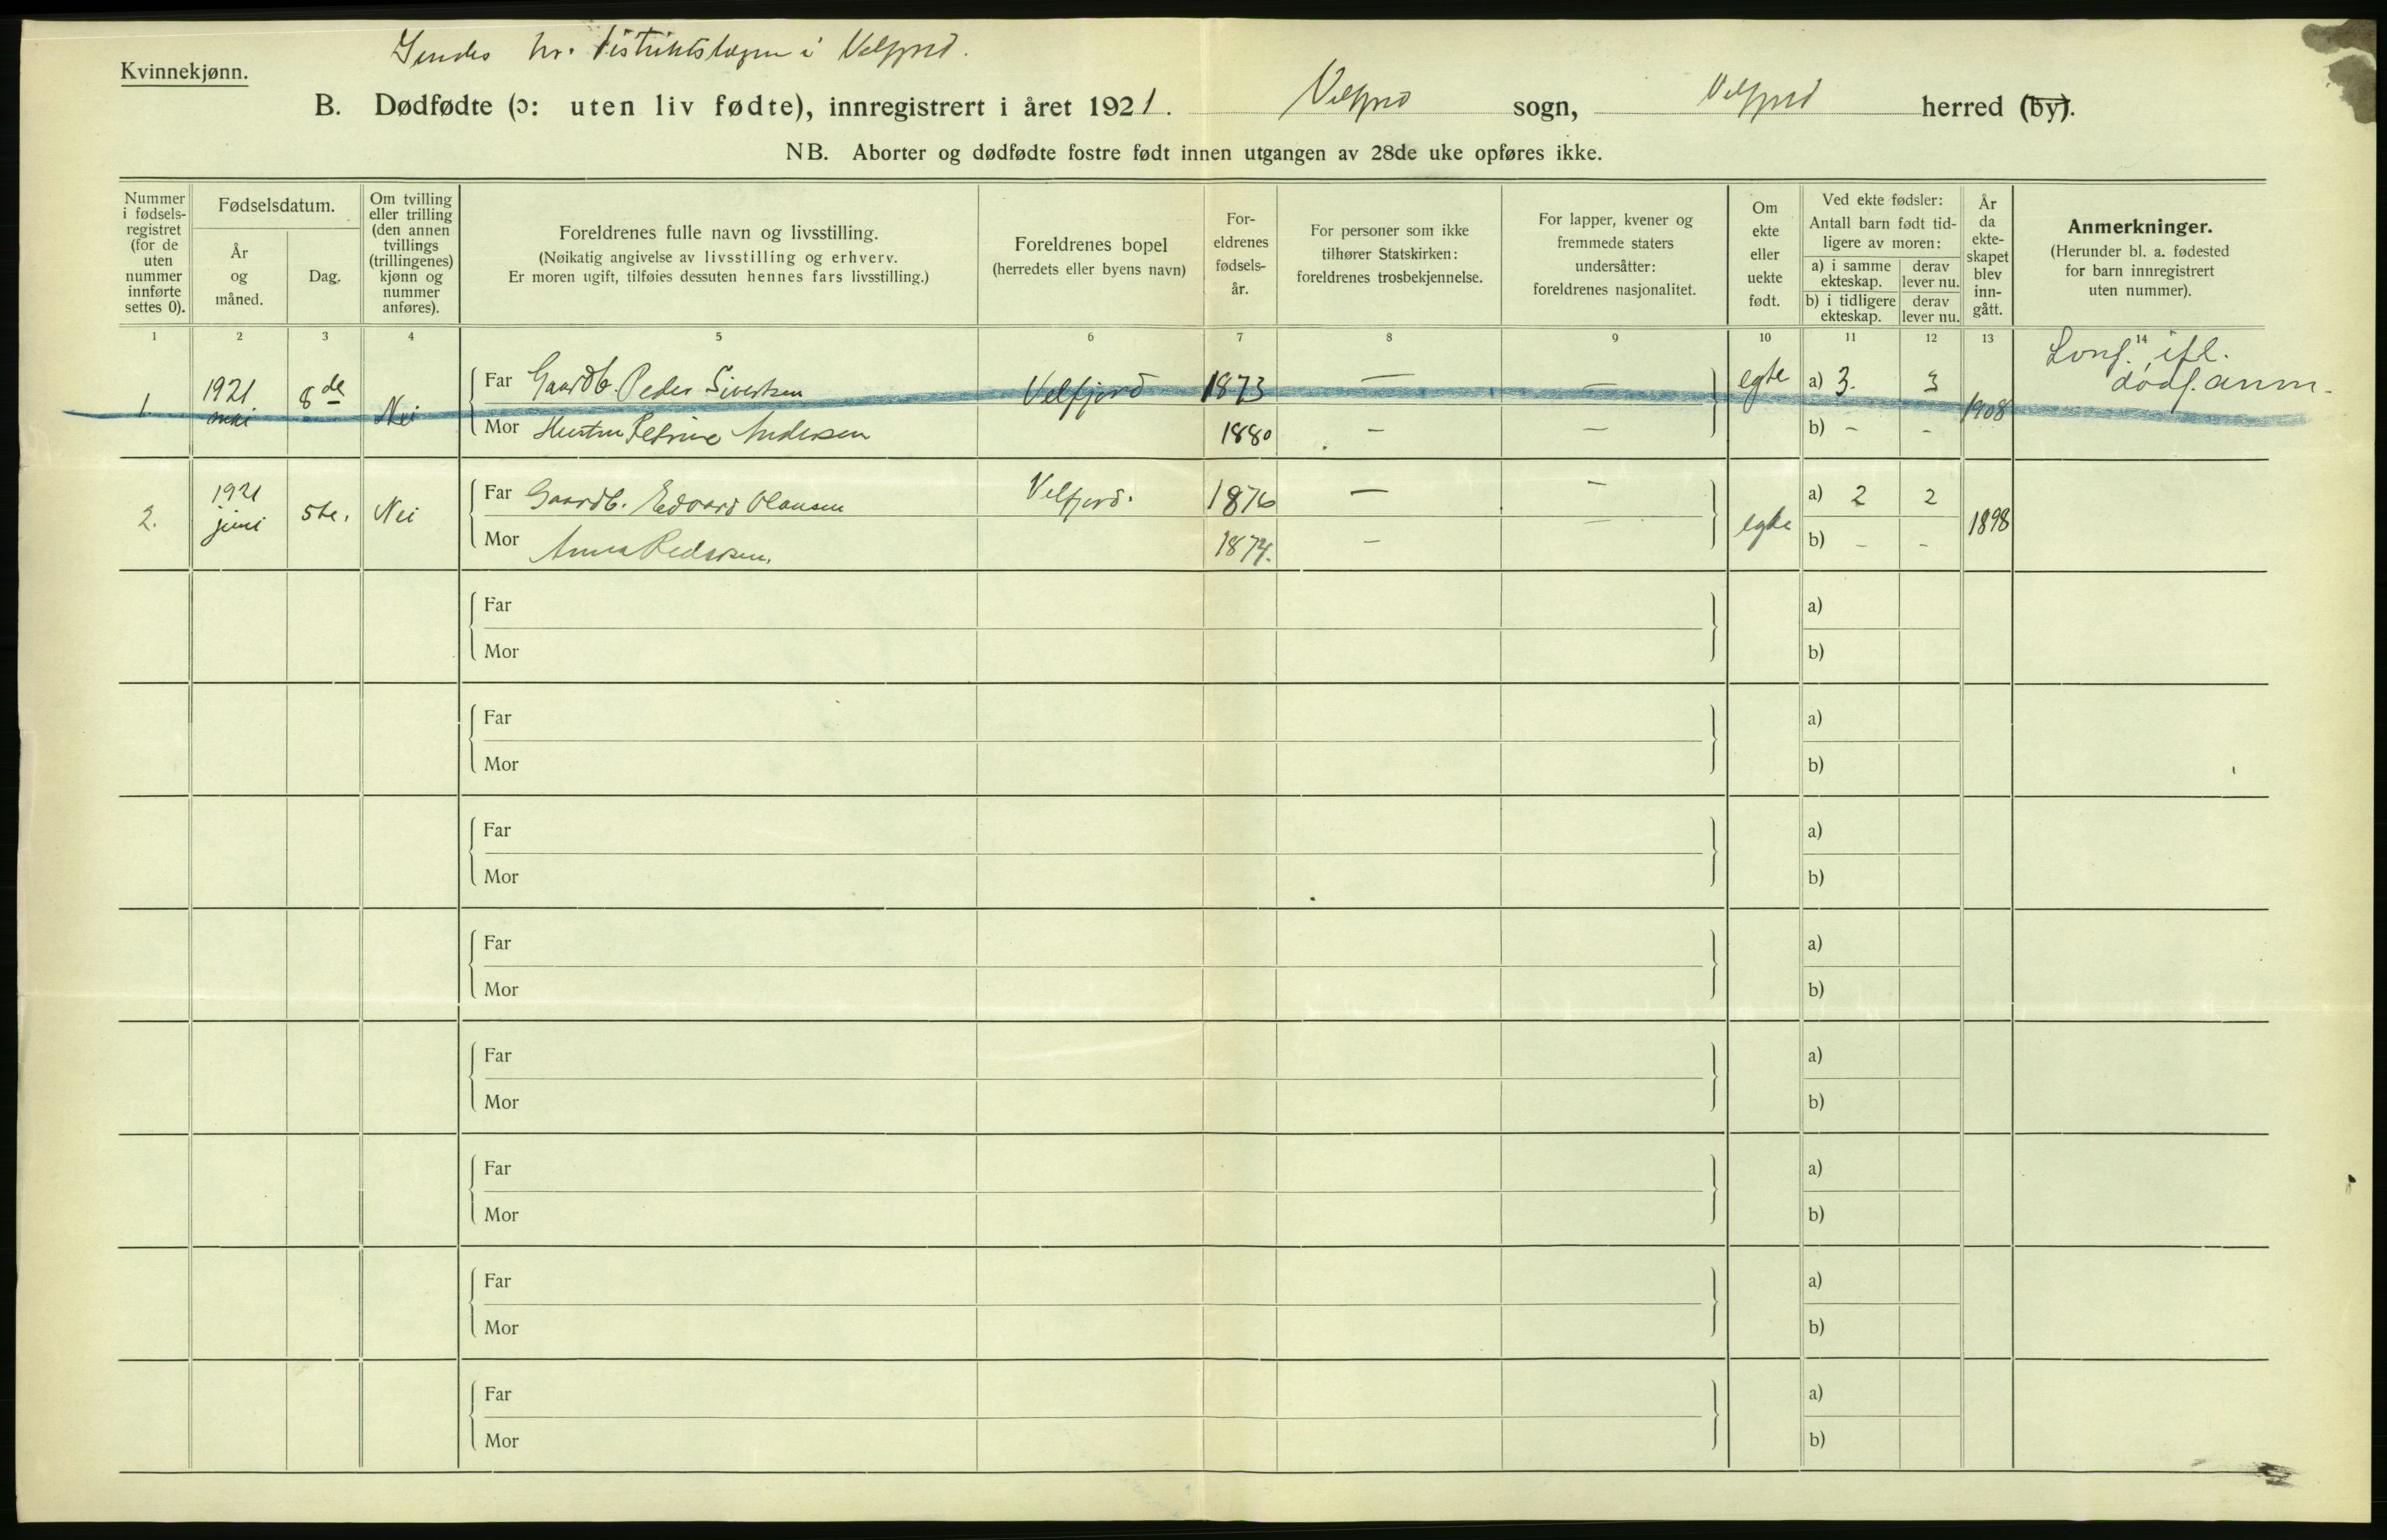 Sendes hr. distriktslægen i Velfjord.
Kvinnekjønn.
B. Dødfødte (ɔ: uten liv fødte), innregistrert i året 1921. Velfjord sogn, Velfjord herred (by).
NB. Aborter og dødfødte fostre født innen utgangen av 28de uke opføres ikke.
Nummer i fødsels-registret (for de uten nummer innførte settes 0).
Fødselsdatum.
År og måned.
Dag.
Om tvilling eller trilling (den annen tvillings (trillingenes) kjønn og nummer anføres).
Foreldrenes fulle navn og livsstilling.
(Nøikatig angivelse av livsstilling og erhverv.
Er moren ugift, tilføies dessuten hennes fars livsstilling.)
Foreldrenes bopel
(herredets eller byens navn)
For-eldrenes fødsels-år.
For personer som ikke tilhører Statskirken: foreldrenes trosbekjennelse.
For lapper, kvener og fremmede staters undersåtter: foreldrenes nasjonalitet.
Om ekte eller uekte født.
Ved ekte fødsler:
Antall barn født tid-ligere av moren:
a) i samme ekteskap.
derav lever nu.
b) i tidligere ekteskap.
derav lever nu.
År da ekte-skapet blev inn-gått.
Anmerkninger.
(Herunder bl. a. fødested for barn innregistrert uten nummer).
1 2 3 4 5 6 7 8 9 10 11 12 13 14
1. 1921 mai 8de Nei Far Gaardb. Peder Sivertsen Velfjord 1873 — — egte a) 3. 3 1908
Mor Hustru Petrine Andersen 1880 — — b) - -
ifl. dødf. anm.
2. 1921 juni 5te. Nei Far Gaardb. Edvard Olausen Velfjord. 1876 — — egte a) 2 2 1898
Mor Anna Pedersen. 1874. — — b) - -
Far a)
Mor b)
Far a)
Mor b)
Far a)
Mor b)
Far a)
Mor b)
Far a)
Mor b)
Far a)
Mor b)
Far a)
Mor b)
Far a)
Mor b)